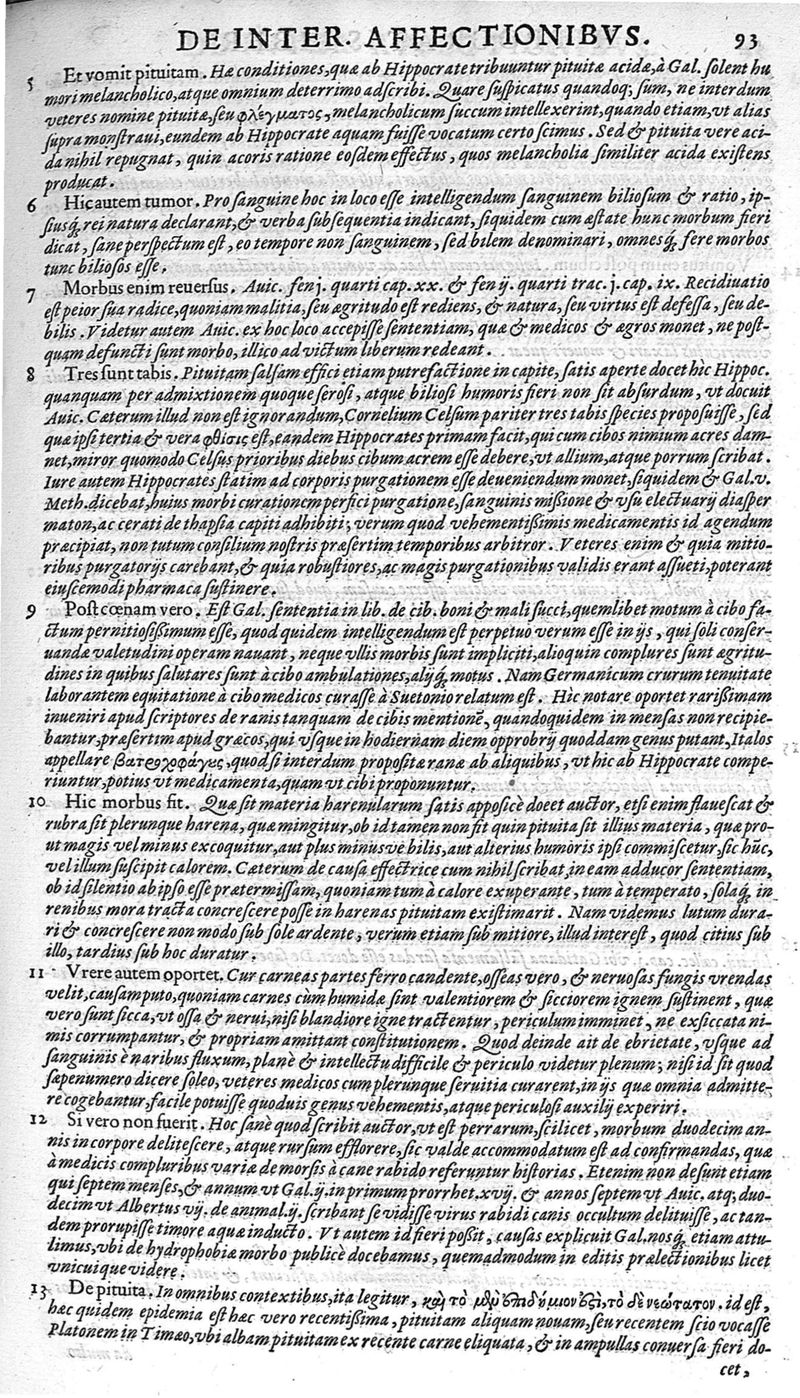 DE INTER. AFFECTIONIBVS. 93
5 Et vomit pituitam. Hæ conditiones, quæ ab Hippocrate tribuuntur pituitæ acidæ, à Gal. solent hu
mori melancholico, atque omnium deterrimo adscribi. Quare suspicatus quandoq; sum, ne interdum
veteres nomine pituitæ, seu φλέγματος, melancholicum succum intellexerint, quando etiam, vt alias
supra monstraui, eundem ab Hippocrate aquam fuisse vocatum certo scimus. Sed & pituita vere aci-
da nihil repugnat, quin acoris ratione eosdem effectus, quos melancholia similiter acida existens
producat.
6 Hic autem tumor. Pro sanguine hoc in loco esse intelligendum sanguinem biliosum & ratio, ip-
siusq́; rei natura declarant, & verba subsequentia indicant, siquidem cum æstate hunc morbum fieri
dicat, sane perspectum est, eo tempore non sanguinem, sed bilem denominari, omnesq́; fere morbos
tunc biliosos esse.
7 Morbus enim reuersus. Auic. fen j. quarti cap. xx. & fen ij. quarti trac. j. cap. ix. Recidiuatio
est peior sua radice, quoniam malitia, seu ægritudo est rediens, & natura, seu virtus est defessa, seu de-
bilis. Videtur autem Auic. ex hoc loco accepisse sententiam, quæ & medicos & ægros monet, ne post-
quam defuncti sunt morbo, illico ad victum liberum redeant.
8 Tres sunt tabis. Pituitam salsam effici etiam putrefactione in capite, satis aperte docet hîc Hippoc.
quanquam per admixtionem quoque serosi, atque biliosi humoris fieri non sit absurdum, vt docuit
Auic. Cæterum illud non est ignorandum, Cornelium Celsum pariter tres tabis species proposuisse, sed
quæ ipsi tertia & vera φθίσις est, eandem Hippocrates primam facit, qui cum cibos nimium acres dam-
net, miror quomodo Celsus prioribus diebus cibum acrem esse debere, vt allium, atque porrum scribat.
Iure autem Hippocrates statim ad corporis purgationem esse deueniendum monet, siquidem & Gal. v.
Meth. dicebat, huius morbi curationem perfici purgatione, sanguinis missione & vsu electuarij diasper
maton, ac cerati de thapsia capiti adhibiti; verum quod vehementissimis medicamentis id agendum
præcipiat, non tutum consilium nostris præsertim temporibus arbitror. Veteres enim & quia mitio-
ribus purgatorijs carebant, & quia robustiores, ac magis purgationibus validis erant assueti, poterant
eiuscemodi pharmaca sustinere.
9 Post cœnam vero. Est Gal. sententia in lib. de cib. boni & mali succi, quemlibet motum à cibo fa-
ctum pernitiosissimum esse, quod quidem intelligendum est perpetuo verum esse in ijs, qui soli conser-
uandæ valetudini operam nauant, neque vllis morbis sunt impliciti, alioquin complures sunt ægritu-
dines in quibus salutares sunt à cibo ambulationes, alijq́; motus. Nam Germanicum crurum tenuitate
laborantem equitatione à cibo medicos curasse à Suetonio relatum est. Hic notare oportet rarissimam
inueniri apud scriptores de ranis tanquam de cibis mentionẽ, quandoquidem in mensas non recipie-
bantur, præsertim apud græcos, qui vsque in hodiernam diem opprobrij quoddam genus putant, Italos
appellare βατροχοφάγες, quod si interdum propositæ ranæ ab aliquibus, vt hic ab Hippocrate compe-
riuntur, potius vt medicamenta, quam vt cibi proponuntur.
10 Hic morbus fit. Quæ sit materia harenularum satis apposicè docet auctor, etsi enim flauescat &
rubra sit plerunque harena, quæ mingitur, ob id tamen non fit quin pituita sit illius materia, quæ pro-
ut magis vel minus excoquitur, aut plus minusve bilis, aut alterius humoris ipsi commiscetur, sic hũc,
vel illum suscipit calorem. Cæterum de causa effectrice cum nihil scribat, in eam adducor sententiam,
ob id silentio ab ipso esse prætermissam, quoniam tum à calore exuperante, tum à temperato, solaq́; in
renibus mora tracta concrescere posse in harenas pituitam existimarit. Nam videmus lutum dura-
ri & concrescere non modo sub sole ardente, verum etiam sub mitiore, illud interest, quod citius sub
illo, tardius sub hoc duratur.
11 Vrere autem oportet. Cur carneas partes ferro candente, osseas vero, & neruosas fungis vrendas
velit, causam puto, quoniam carnes cùm humidæ sint valentiorem & sicciorem ignem sustinent, quæ
vero sunt sicca, vt ossa & nerui, nisi blandiore igne tractentur, periculum imminet, ne exsiccata ni-
mis corrumpantur, & propriam amittant constitutionem. Quod deinde ait de ebrietate, vsque ad
sanguinis è naribus fluxum, planè & intellectu difficile & periculo videtur plenum; nisi id sit quod
sæpenumero dicere soleo, veteres medicos cum plerunque seruitia curarent, in ijs quæ omnia admitte-
re cogebantur, facile potuisse quoduis genus vehementis, atque periculosi auxilij experiri.
12 Si vero non fuerit. Hoc sanè quod scribit auctor, vt est perrarum, scilicet, morbum duodecim an-
nis in corpore delitescere, atque rursum efflorere, sic valde accommodatum est ad confirmandas, quæ
à medicis compluribus variæ de morsis à cane rabido referuntur historias. Etenim non desunt etiam
qui septem menses, & annum vt Gal. ij. in primum prorrhet. xvij. & annos septem vt Auic. atq; duo-
decim vt Albertus vij. de animal. ij. scribant se vidisse virus rabidi canis occultum delituisse, ac tan-
dem prorupisse timore aquæ inducto. Vt autem id fieri possit, causas explicuit Gal. nosq́; etiam attu-
limus, vbi de hydrophobiæ morbo publicè docebamus, quemadmodum in editis prælectionibus licet
vnicuique videre.
13 De pituita. In omnibus contextibus, ita legitur, καὶ τὸ μὲν ἐπιδήμιον ἐστί, τὸ δὲ νεώτατον. id est,
hæc quidem epidemia est hæc vero recentissima, pituitam aliquam nouam, seu recentem scio vocasse
Platonem in Timæo, vbi albam pituitam ex recente carne eliquata, & in ampullas conuersa fieri do-
cet,